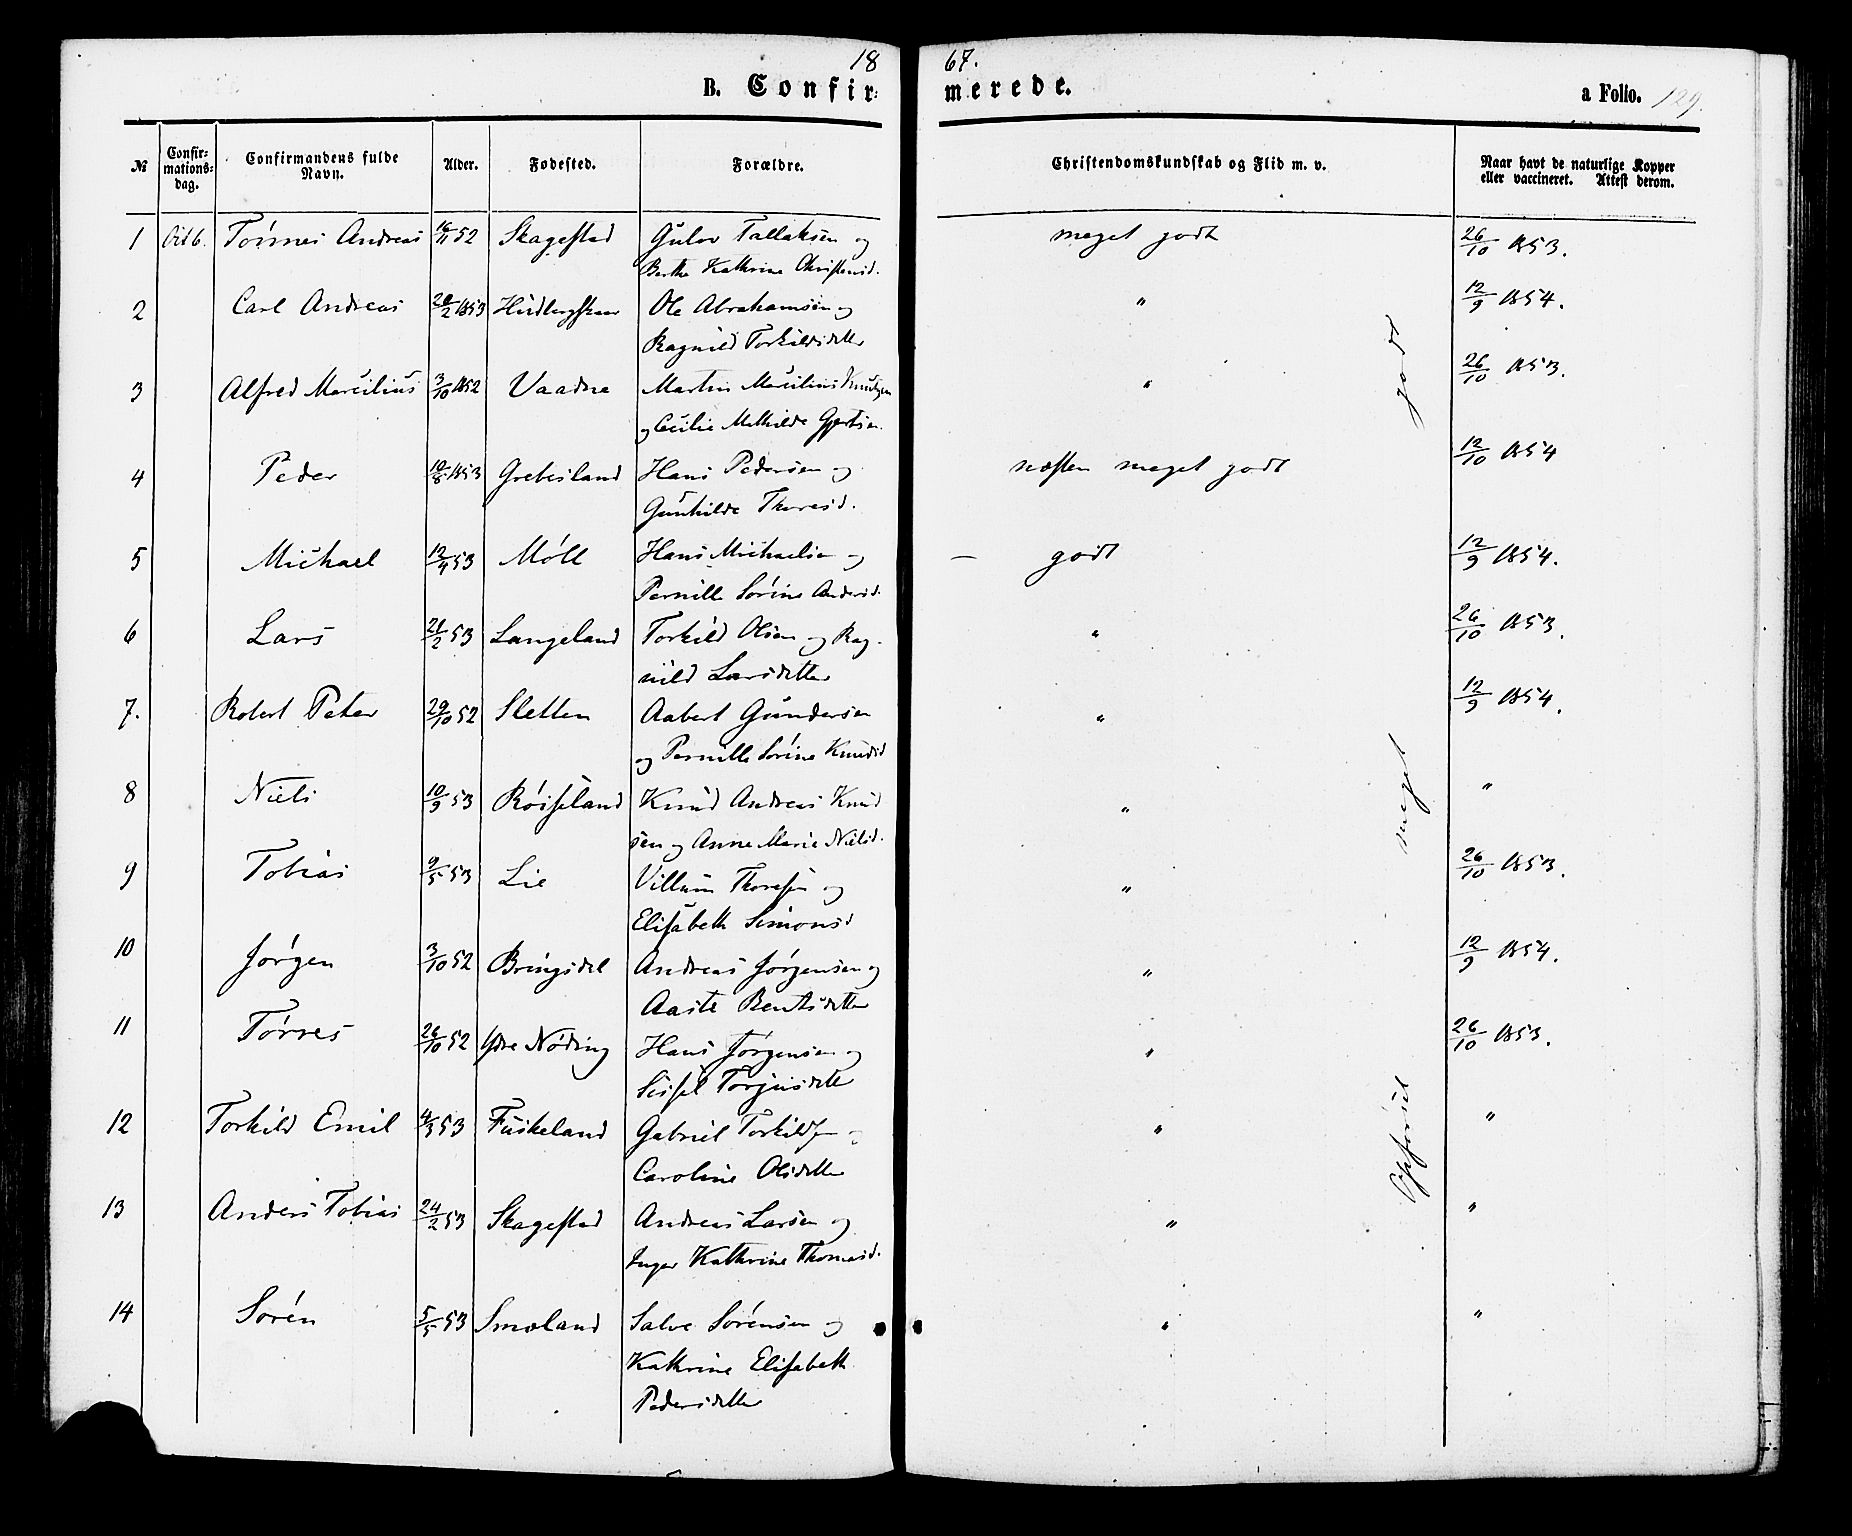 1867.
B. Confirmerede.
a Folio. 129.
№ Confirmationsdag. Confirmandens fulde Navn. Alder. Fødested. Forældre. Christendomskundskab og Flid m. v. Naar havt de naturlige Kopper eller vaccineret. Attest derom.
1 Tørres Andreas 16/11 52 Skagestad Gulov Tallaksen og meget godt 26/10 1853.
Berthe Kathrine Christensd.
2 Carl Andreas 2/2 1853 Ole Abrahamsen og " 12/9 1854.
Ragnild Torkildsdetter
3 Alfred Marcilius 3/10 1852 Vaadne Martin Marcilius Knudsen " 26/10 1853.
og Cecilie Mathilde Gjertsen
4 Peder 10/8 1853 Grebesland Hans Pedersen og næsten meget godt 12/10 1854
Gunhilde Thoresd.
5 Michael 12/4 53 Møll Hans Michaelsen og – godt 12/9 1854.
Pernille Sørine Andersd.
6 Lars 21/2 53 Langeland Torkild Olsen og Rag- " 26/10 1853.
nild Larsdetter
7. Robert Peter 29/10 52 Sletten Aabert Gundersen " 12/9 1854.
og Pernille Sørine Knudsd
8 Niels 10/9 53 Røiseland Knud Andreas Knud " "
sen og Anne Marie Nielsd.
9 Tobias 9/5 53 Lie Villum Thoresen og " 26/10 1853.
Elisabeth Simonsd
10 Jørgen 3/10 52 Bringsdal Andreas Jørgensen og " 12/9 1854.
Aaste Bentsdetter
11 Tørres 26/10 52 Ydre Nøding Hans Jørgensen og " 26/10 1853.
Sissel Torjusdetter
12 Torkild Emil 4/3 53 Fuskeland Gabriel Torkildsen og " "
Caroline Olsdetter
13 Anders Tobias 24/2 53 Skagestad Andreas Larsen og " "
Inger Kathrine Thomasd.
14 Søren 5/5 53 Smaland Salve Sørensen og " "
Kathrine Elisabeth
Pedersdetter
Opførsel meget godt